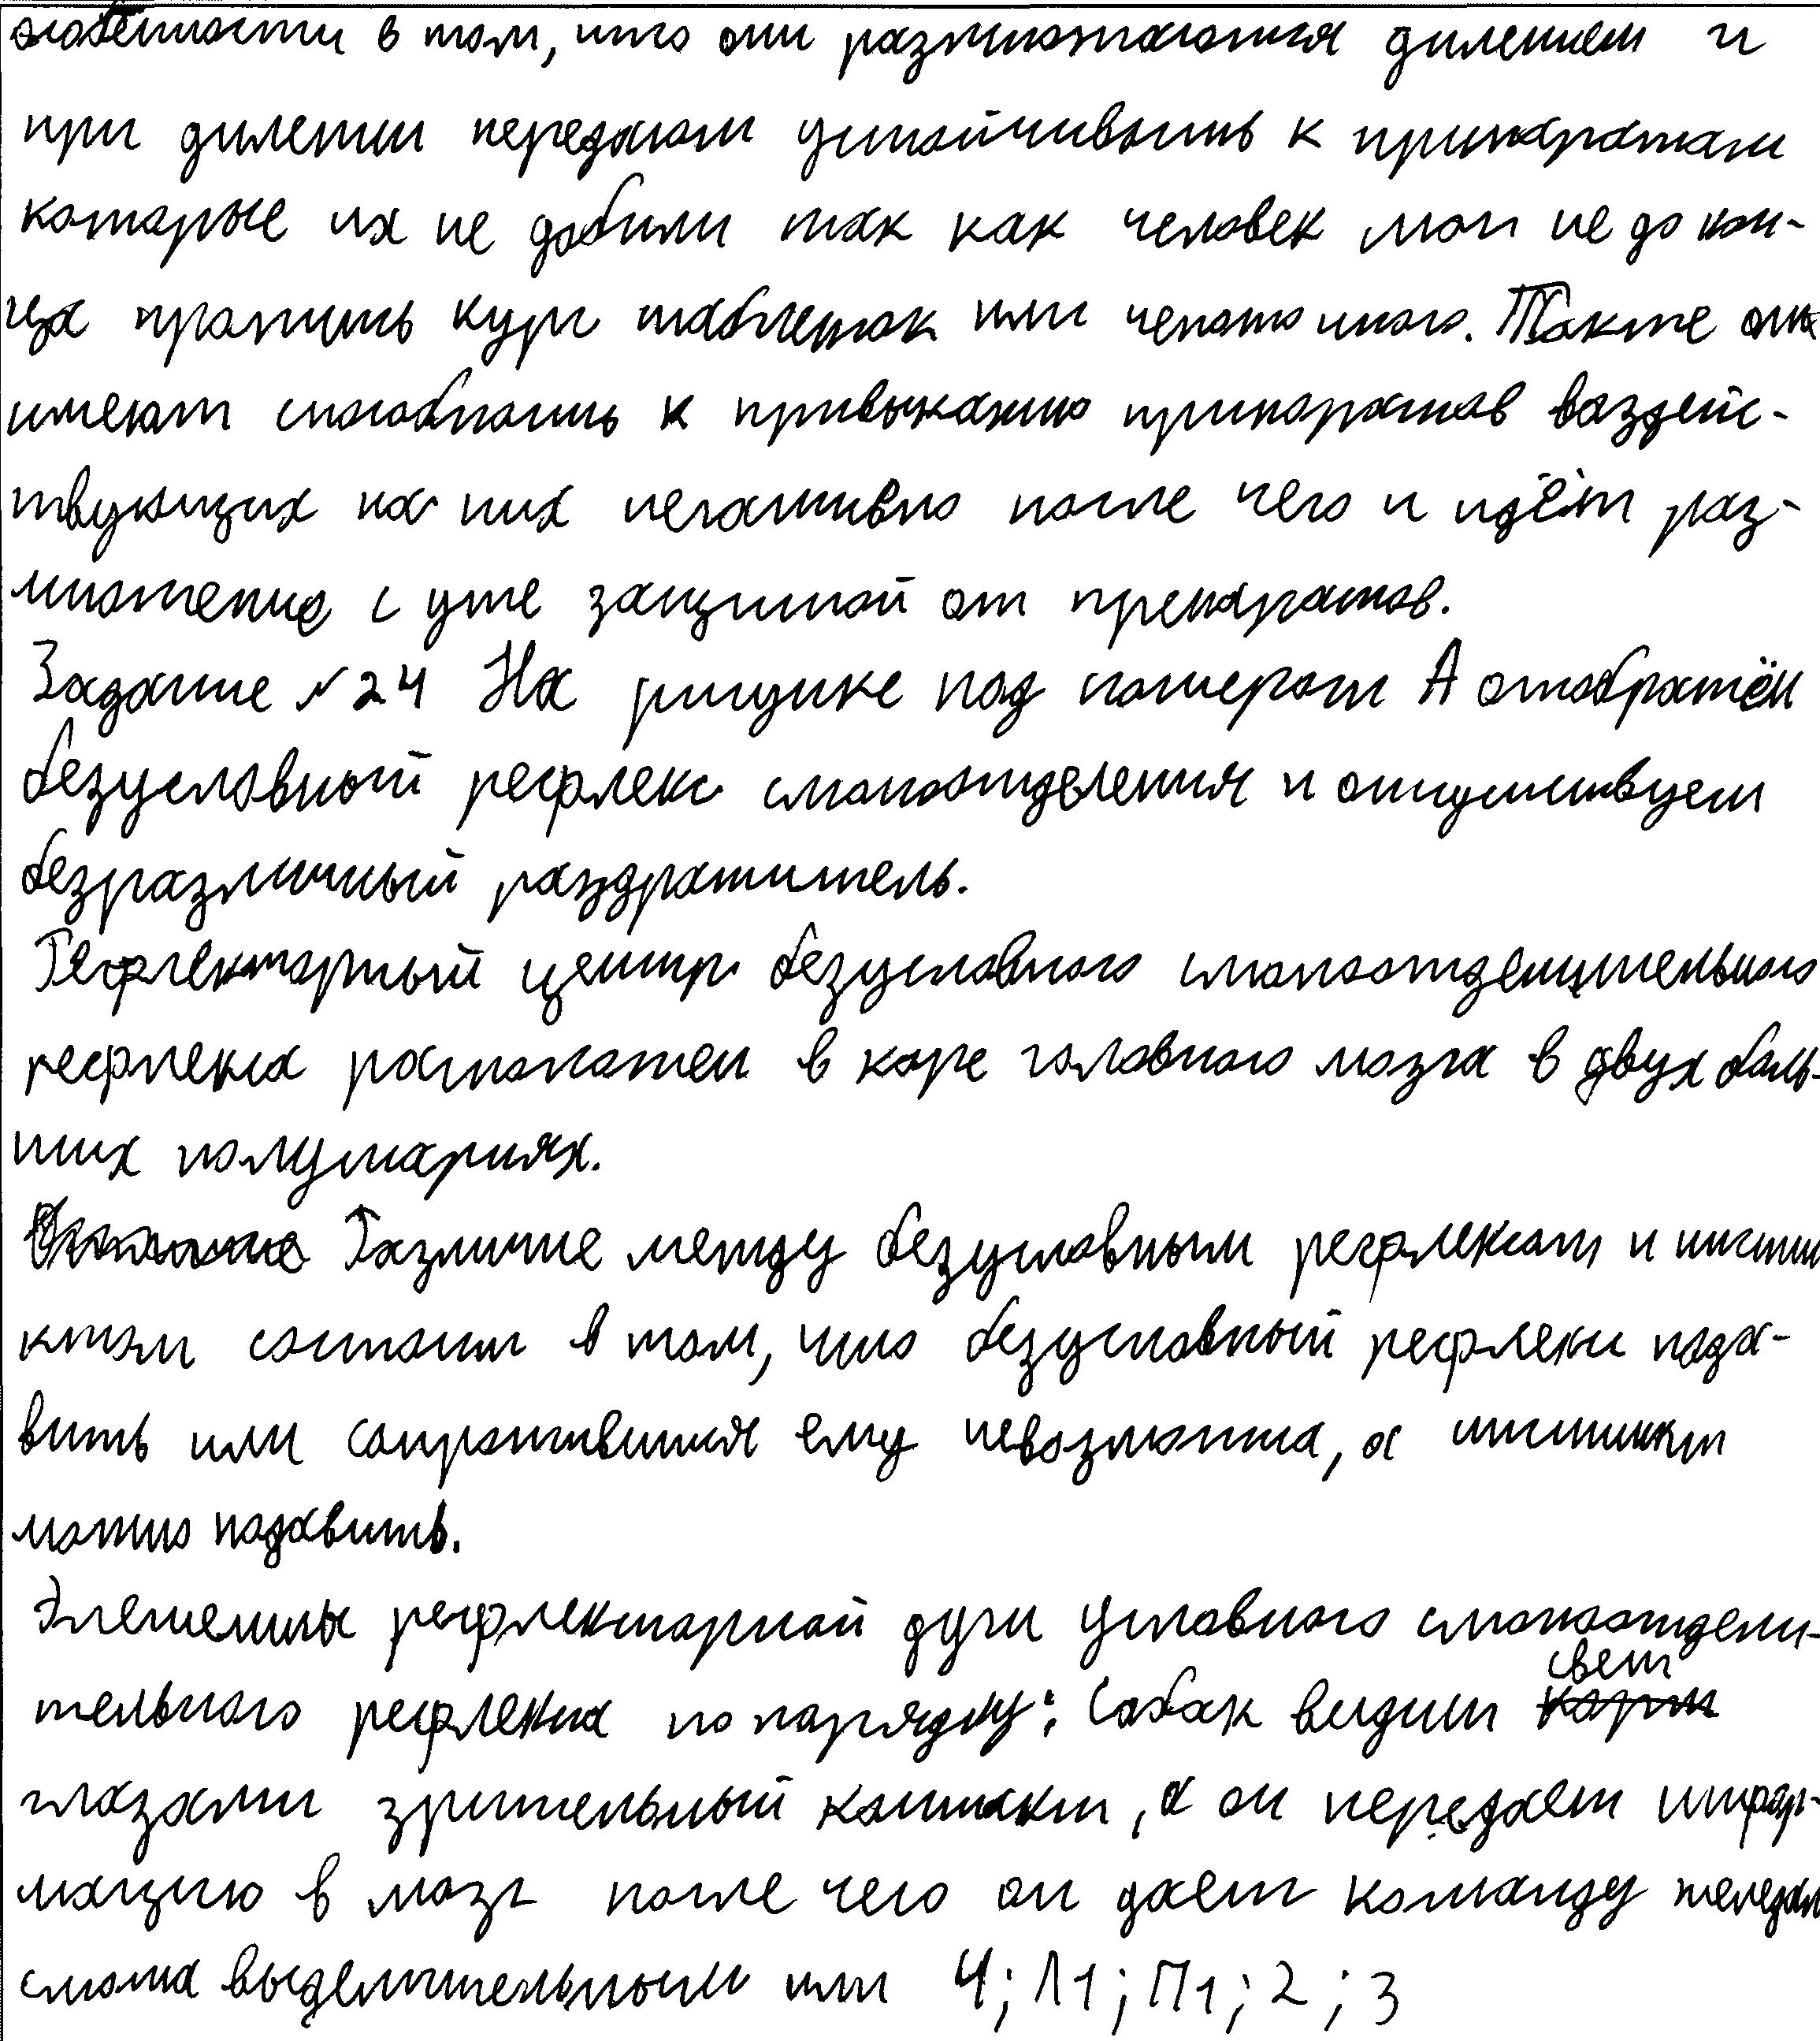 особенности в том, что они размножаются дилением и
при дилении передают устойчивость к припаратам
которые их не добили так как человек мог не до кон-
ца пропить курс таблеток или чегото иного. Также они
имеют способность к привыканию припоратов воздейс-
твующих на них негативно после чего и идёт раз-
множение с уже защитой от препаратов.
Задание №24 На рисунке под номером А отображён
безусловный рефлекс слюноотделения и отсутствует
безразличный раздражитель.
Рефлекторный центр безусловного слюноотделительного
рефлекса расположен в коре головного мозга в двух боль-
ших полушариях.
Различие между безусловным рефлексом и инстин
ктом состоит в том, что безусловный рефлекс пода-
вить или сопративится ему невозможно, а инстинкт
можно подавить.
Элементы рефлекторной дуги условного слюноотдели-
тельного рефлекса по порядку: Собак видит свет
глазами зрительный контакт, а он передаёт инфор-
мацию в мозг после чего он даёт команду железам
слюна выделительным или 4; Л1; П1; 2; 3